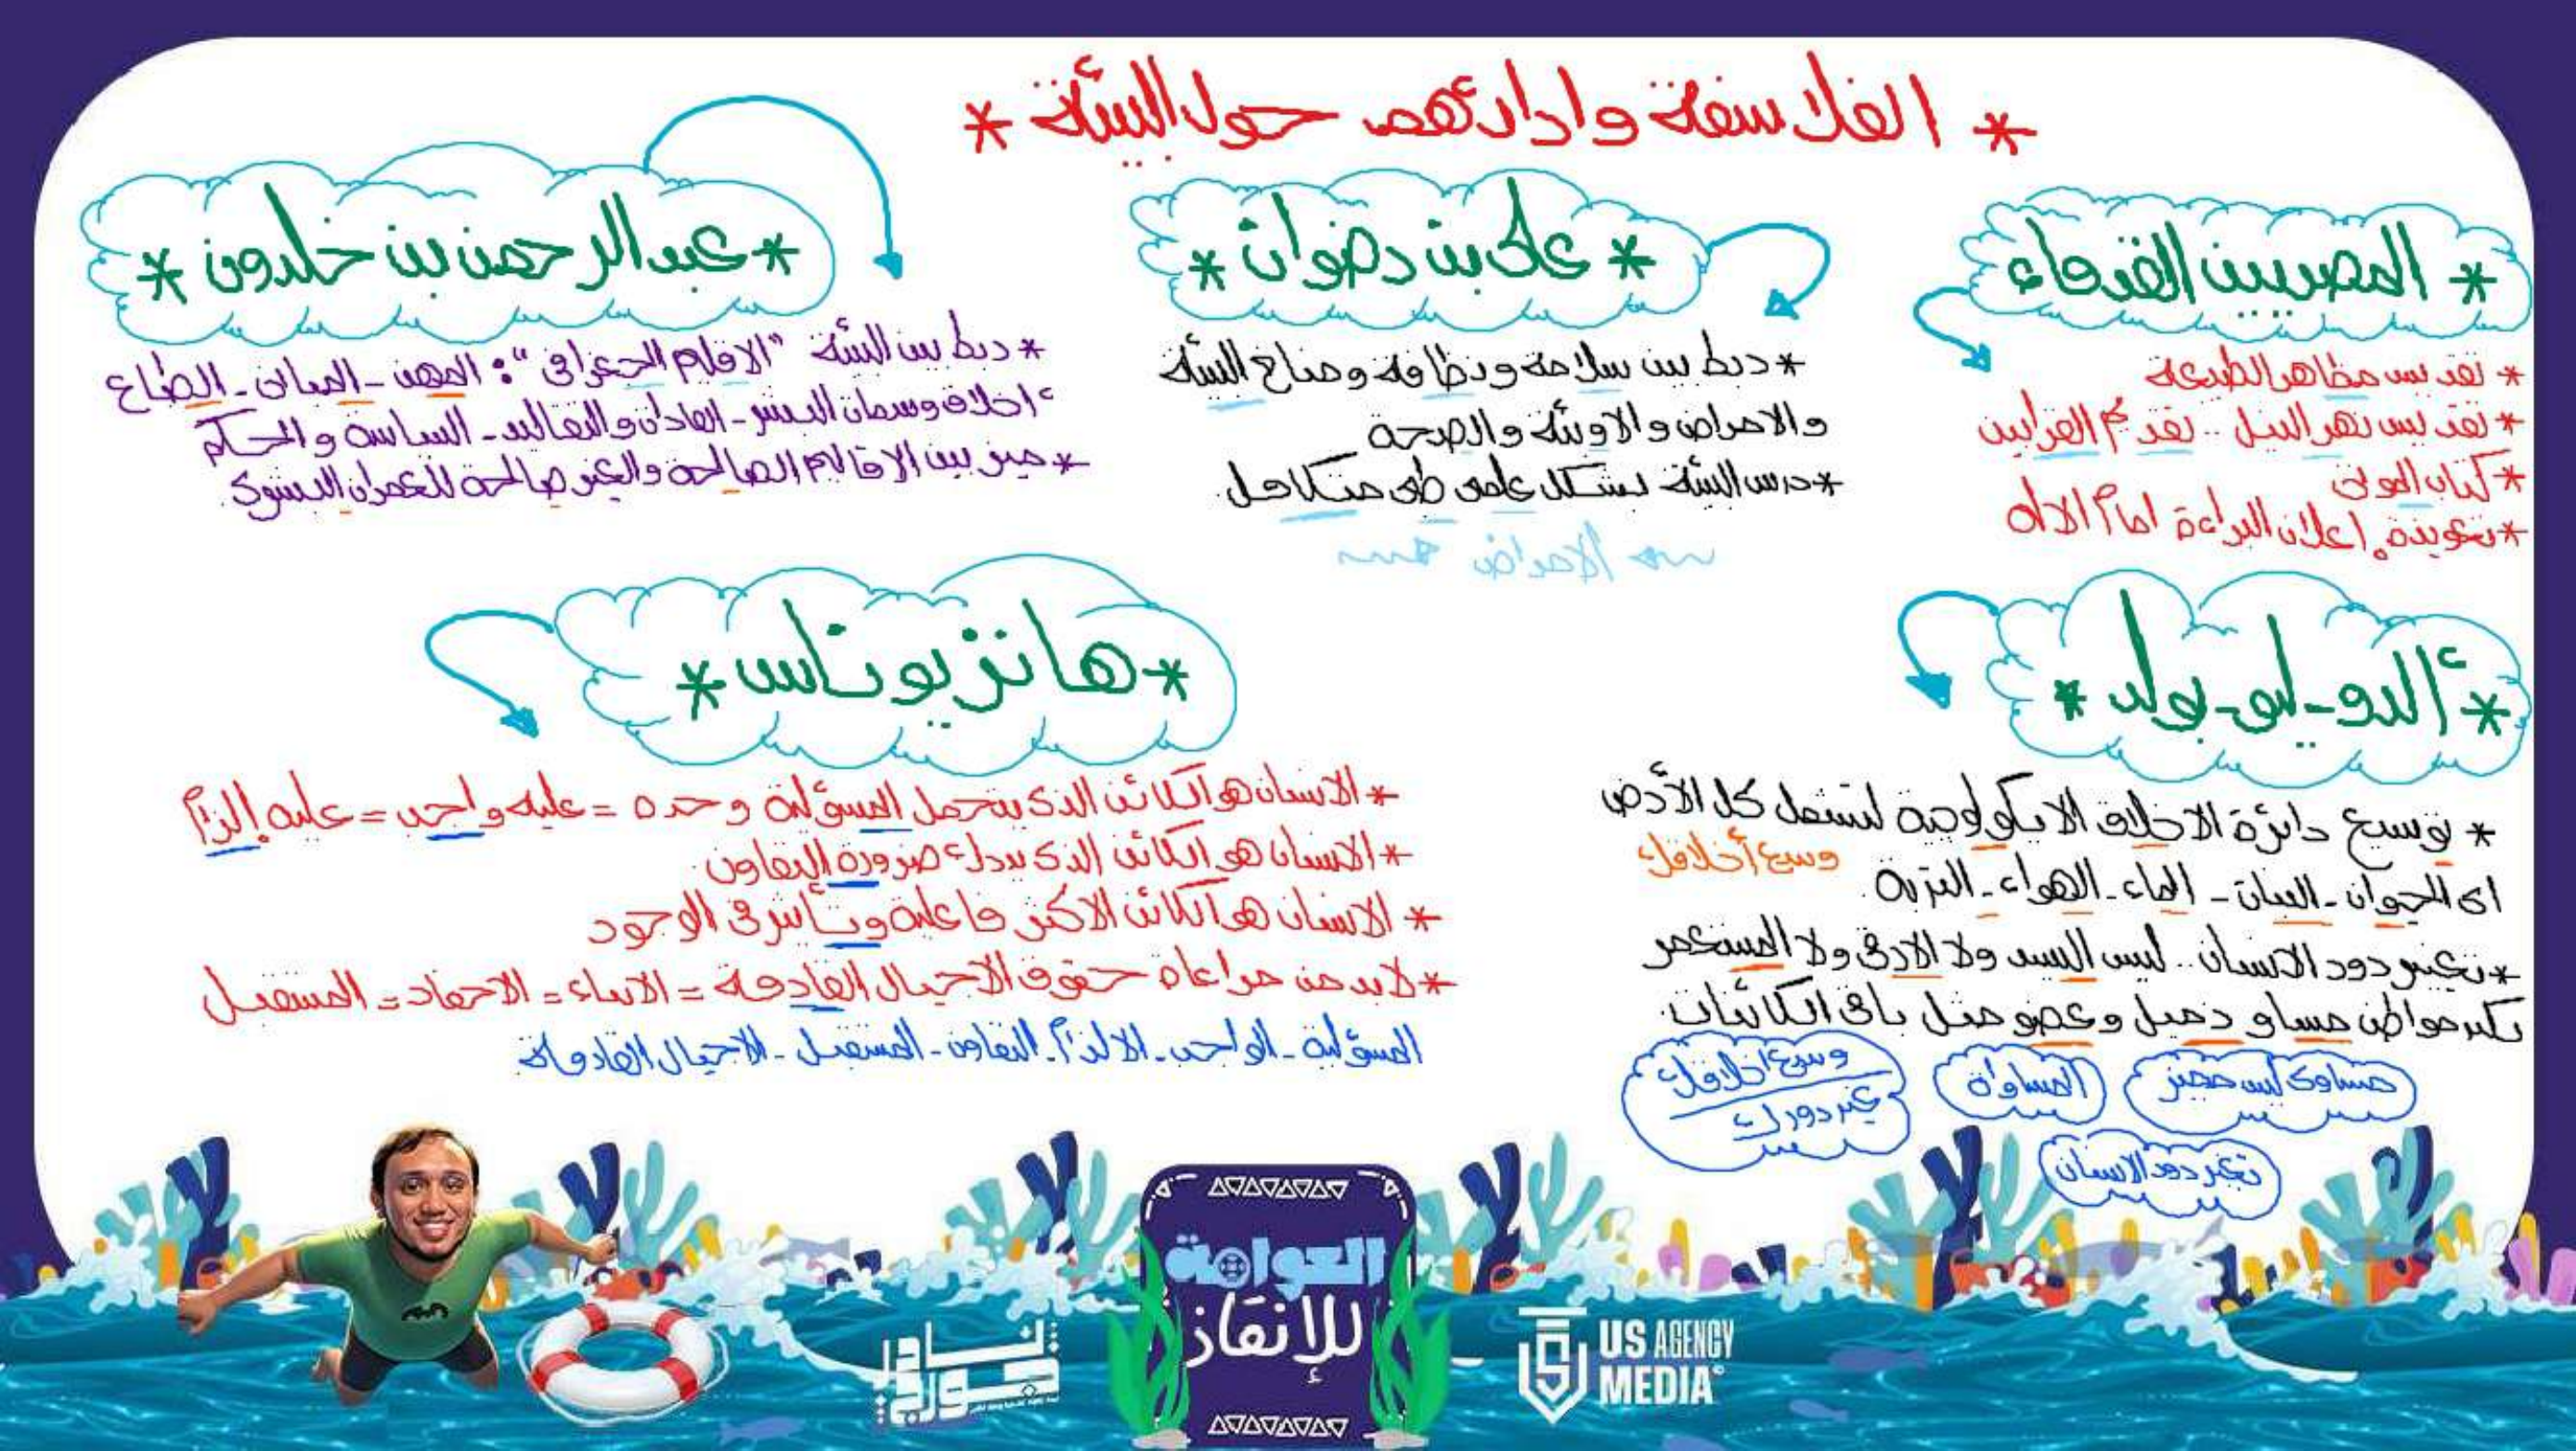 * الفلاسفة واداراتهم حول البيئة *
* المصريين القدماء
* تقديس مظاهر الطبيعة
* تقديس نهر النيل .. تقديم القرابين
* كتاب الموتى
* تعويذة إعلان البراءة امام الاله
* على بن رضوان *
* ربط بين سلامة ونظافة ومناخ البيئة
والامراض والاوبئة والصحة
* درس البيئة بشكل علمى طبى متكامل
الأمراض
* عبد الرحمن بن خلدون *
* ربط بين البيئة "الاقليم الجغرافى": المهن - المبانى - الطباع
اخلاق وسمات البشر - العادات والتقاليد - السياسة والحكم
* ميز بين الاقاليم الصالحة والغير صالحة للعمران البشرى
* ألدو - ليو - بولد *
* توسيع دائرة الاخلاق الايكولوجية لتشمل كل الأرض
وسع أخلاقك
اى الحيوان - النبات - الماء - الهواء - التربة
* تغيير دور الانسان .. ليس السيد ولا الارقى ولا المستعمر
بكير مواطن مساو زميل وعضو مثل باقى الكائنات
مساوى ليس مميز
المساواة
وسع اخلاقك
غير دورك
تغير دور الانسان
* هانز يوناس *
* الانسان هو الكائن الذى يتحمل المسؤلية وحده = عليه واجب = عليه إلزام
* الانسان هو الكائن الذى يدرك ضرورة التعاون
* الانسان هو الكائن الاكثر فاعلية وتأثير فى الوجود
* لابد من مراعاة حقوق الاجيال القادمة = الابناء = الاحفاد = المستقبل
المسؤلية - الواجب - الالزام - التعاون - المستقبل - الاجيال القادمة
العوامة
للإنقاذ
نادر
جورج
US AGENCY
MEDIA